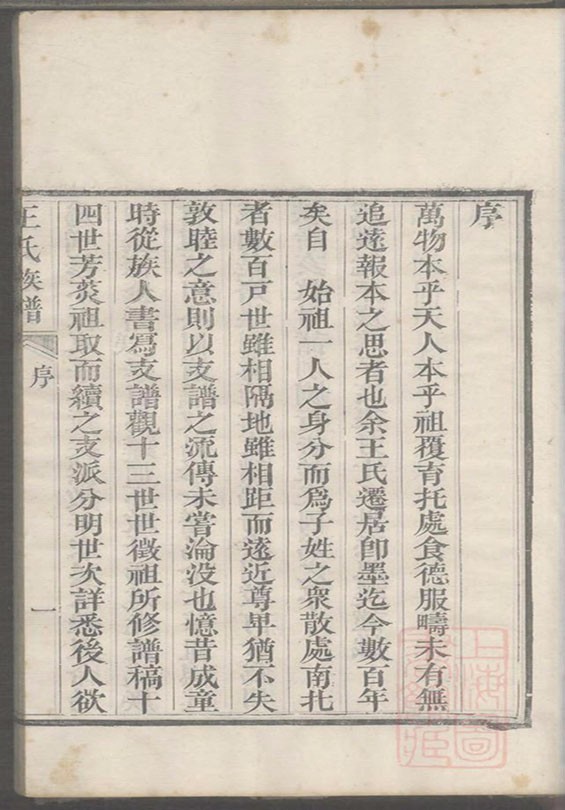 序
萬物本乎天人本乎祖覆育托處食德服疇未有無
追遠報本之思者也余王氏遷居卽墨迄今數百年
矣自　始祖一人之身分而爲子姓之衆散處南北
者數百戸世雖相隔地雖相距而遠近尊卑猶不失
敦睦之意則以支譜之流傳未嘗淪没也憶昔成童
時從族人書寫支譜觀十三世世徵祖所修譜稿十
四世芳芡祖取而續之支派分明世次詳悉後人欲
王氏族譜　序　一
上海圖